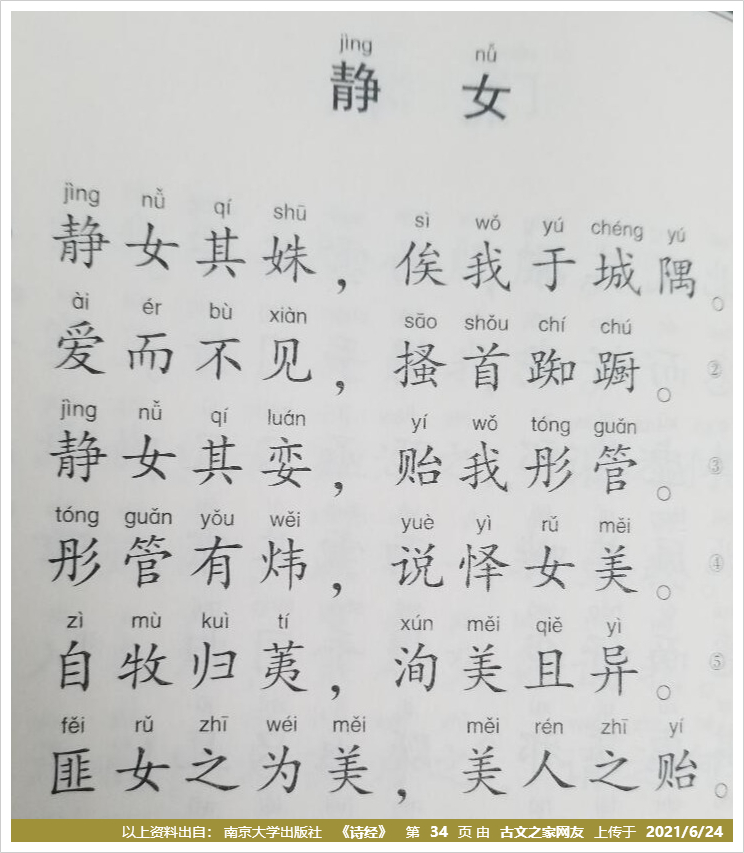 jìng nǚ
静 女
jìng nǚ qí shū sì wǒ yú chéng yú
静女其姝，俟我于城隅。
ài ér bù xiàn sāo shǒu chí chú
爱而不见，搔首踟蹰。②
jìng nǚ qí luán yí wǒ tóng guǎn
静女其娈，贻我彤管。③
tóng guǎn yǒu wěi yuè yì rǔ měi
彤管有炜，说怿女美。④
zì mù kuì tí xún měi qiě yì
自牧归荑，洵美且异。⑤
fěi rǔ zhī wéi měi měi rén zhī yí
匪女之为美，美人之贻。
以上资料出自： 南京大学出版社 《诗经》 第 34 页 由 古文之家网友 上传于 2021/6/24